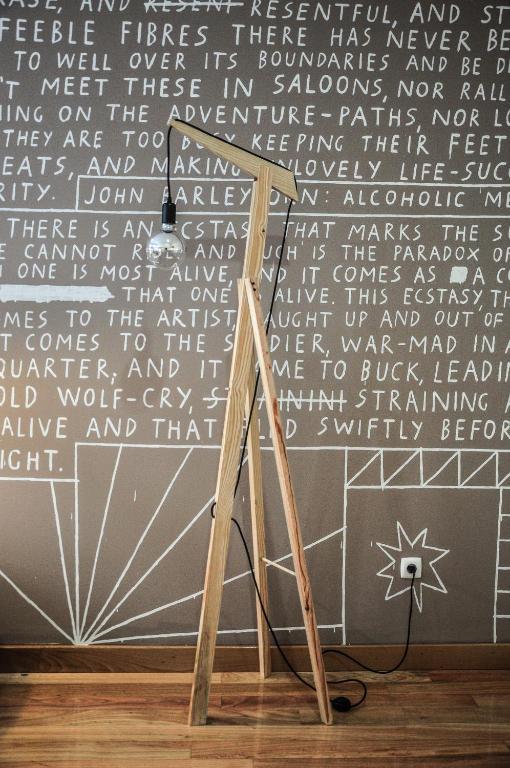 AND RESENT RESENTFUL, AND
FEEBLE FIBRES THERE HAS NEVER BE
TO WELL OVER ITS BOUNDARIES AND BE
'T MEET THESE IN SALOONS, NOR RALL
ING ON THE ADVENTURE-PATHS, NOR LO
THEY ARE TOO KEEPING THEIR FEET
EATS, AND MAKING LOVELY LIFE-SUCC
RITY. JOHN ARLEY : ALCOHOLIC ME
THERE IS AN THAT MARKS THE
CANNOT AND IS THE PARADOX OF
ONE IS MOST ALIVE, AND IT COMES AS A
THAT ONE ALIVE. THIS ECSTASY, TH
MES TO THE ARTIST, AUGHT UP AND OUT OF
T COMES TO THE WAR-MAD IN A
QUARTER, AND IT ME TO BUCK, LEADIN
OLD WOLF-CRY, STRAINING
ALIVE AND THAT SWIFTLY BEFOR
IGHT.